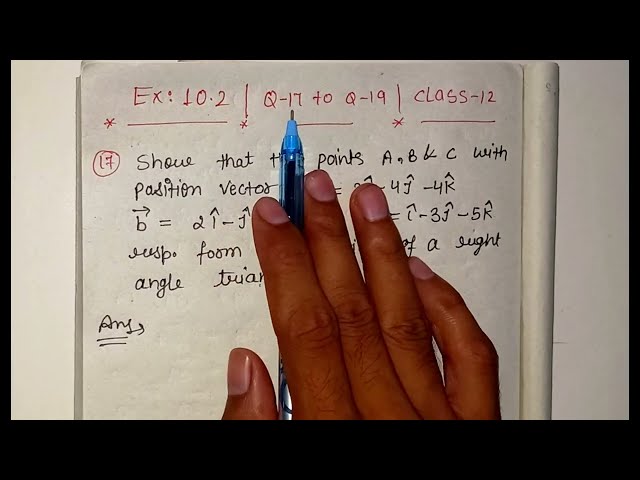 Ex: 10.2 | Q-17 to Q-19 | CLASS-12
* * *
(17) Show that the points A, B & C with
position vector = 3î - 4ĵ - 4k̂
b⃗ = 2î - ĵ = î - 3ĵ - 5k̂
resp. form of a right
angle trian
Ans→